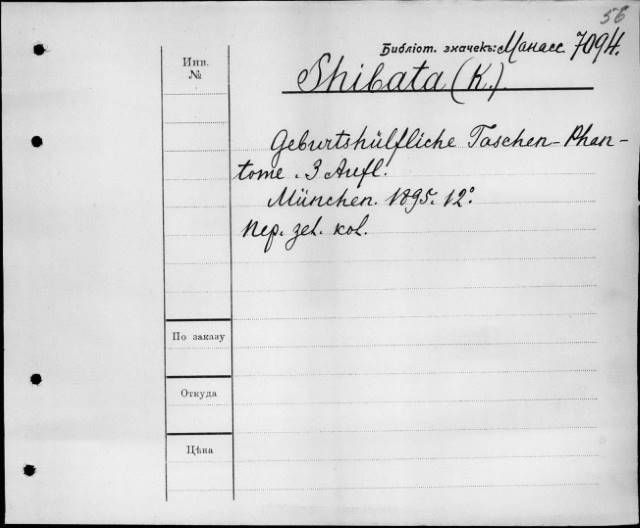 56
Библіот. значекъ: Манасс 7094.
Инв.
№
Shibata (K.)
Geburtshülfliche Taschen-Phan-
tome. 3 Aufl.
München. 1895. 12°.
пер. зел. кол.
По заказу
Откуда
Цѣна